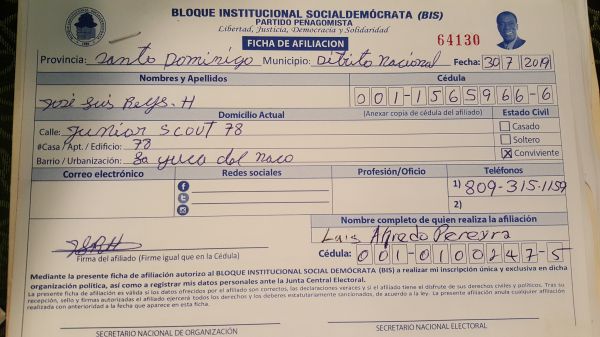 BLOQUE INSTITUCIONAL SOCIALDEMÓCRATA (BIS)
PARTIDO PENAGOMISTA
Libertad, Justicia, Democracia y Solidaridad
FICHA DE AFILIACION
64130
Provincia: Santo Domingo Municipio: Ditrito Nacional Fecha: 30 7 2019
Nombres y Apellidos Cédula
José Luis Reys. H 001-1565966-6
Domicilio Actual (Anexar copia de cédula del afiliado) Estado Civil
Calle: Junior Scout 78 Casado
#Casa / Apt. / Edificio: 78 Soltero
Barrio / Urbanización: La yuca del Naco X Conviviente
Correo electrónico Redes sociales Profesión/Oficio Teléfonos
1) 809-315-1159
2)
Nombre completo de quien realiza la afiliación
Luis Alfredo Pereyra
Firma del afiliado (Firme igual que en la Cédula) Cédula: 001-0100247-5
Mediante la presente ficha de afiliación autorizo al BLOQUE INSTITUCIONAL SOCIAL DEMÓCRATA (BIS) a realizar mi inscripción única y exclusiva en dicha
organización política, así como a registrar mis datos personales ante la Junta Central Electoral.
La presente ficha de afiliación es válida si los datos ofrecidos por el afiliado son correctos, las declaraciones veraces y si el afiliado tiene el disfrute de sus derechos civiles y políticos. Tras su
recepción, sello y firmas autorizadas el afiliado ejercerá todos los derechos y los deberes estatutariamente sancionados, de acuerdo a la ley. La presente afiliación anula cualquier afiliación
realizada con anterioridad a la fecha que aparece en esta ficha.
SECRETARIO NACIONAL DE ORGANIZACIÓN SECRETARIO NACIONAL ELECTORAL